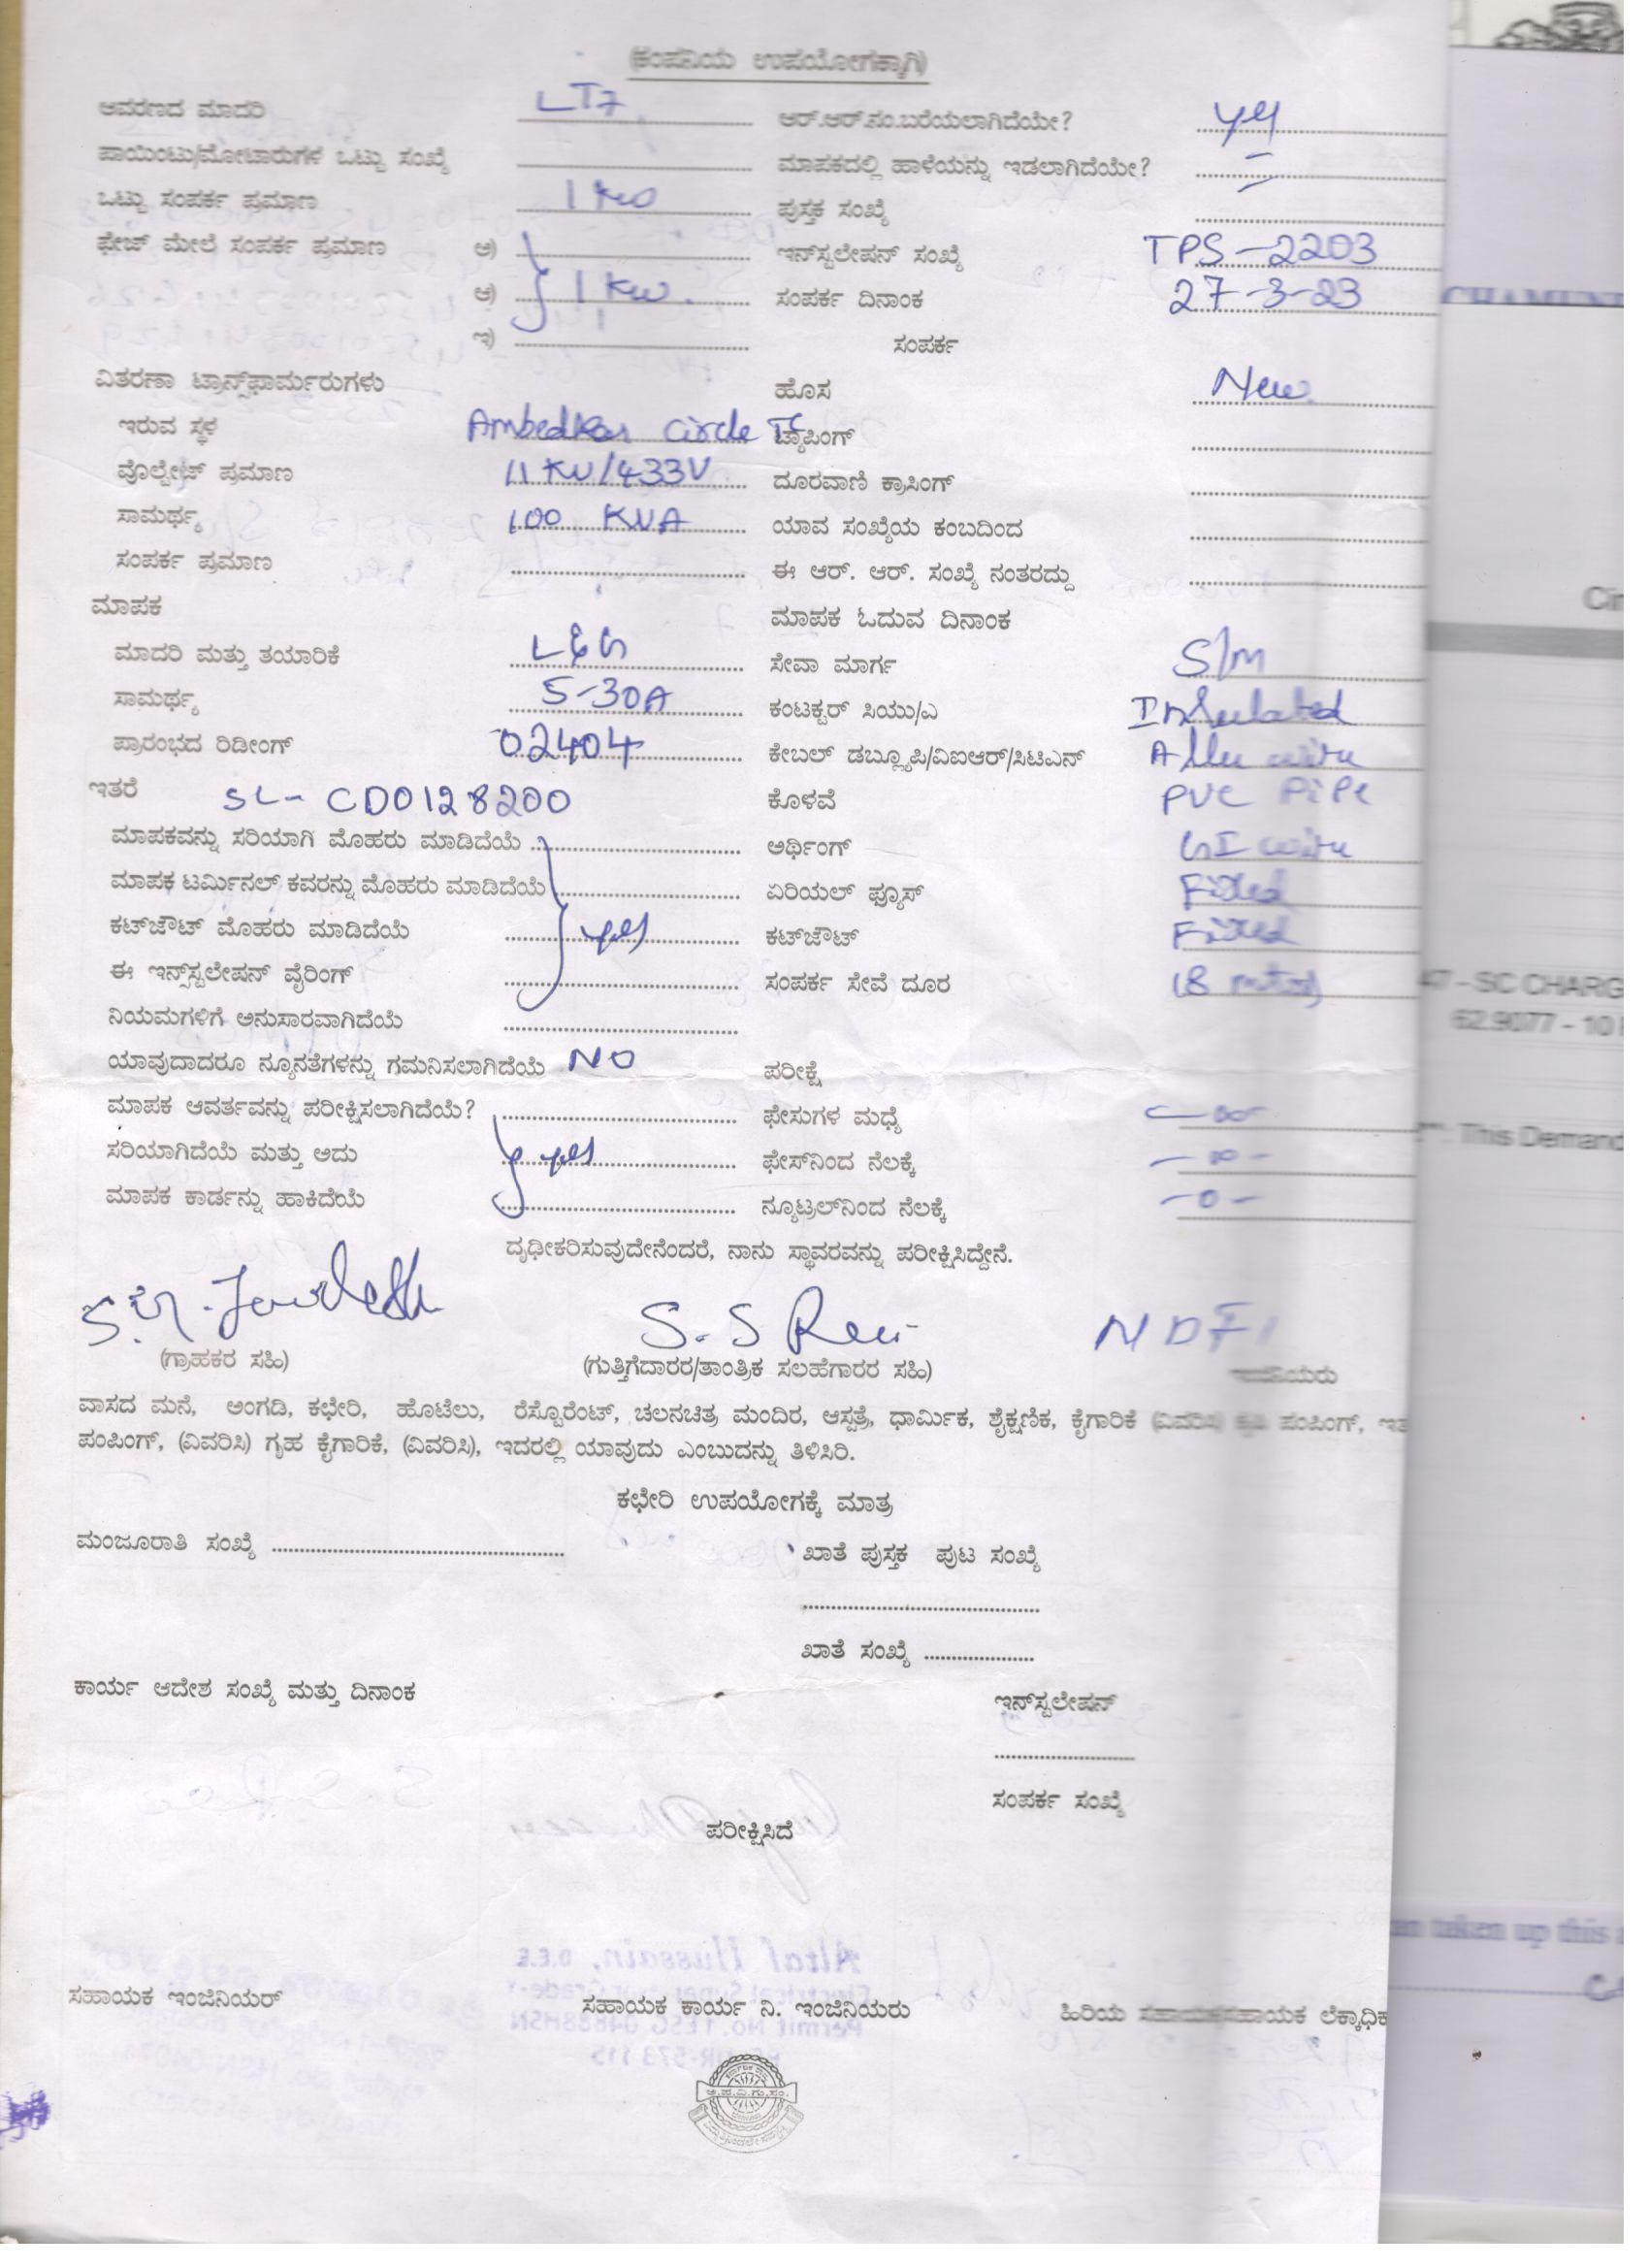 (ಕಂಪನಿಯ ಉಪಯೋಗಕ್ಕಾಗಿ)
ಆವರಣದ ಮಾದರಿ LT7 ಆರ್.ಆರ್.ನಂ.ಬರೆಯಲಾಗಿದೆಯೇ?
ಪಾಯಿಂಟು/ಮೋಟಾರುಗಳ ಒಟ್ಟು ಸಂಖ್ಯೆ ಮಾಪಕದಲ್ಲಿ ಹಾಳೆಯನ್ನು ಇಡಲಾಗಿದೆಯೇ? -
ಒಟ್ಟು ಸಂಪರ್ಕ ಪ್ರಮಾಣ 1 Kw ಪುಸ್ತಕ ಸಂಖ್ಯೆ -
ಫೇಜ್ ಮೇಲೆ ಸಂಪರ್ಕ ಪ್ರಮಾಣ ಅ) ಇನ್‌ಸ್ಟಲೇಷನ್ ಸಂಖ್ಯೆ TPS-2203
ಆ) 1 Kw. ಸಂಪರ್ಕ ದಿನಾಂಕ 27-3-23
ಇ) ಸಂಪರ್ಕ
ವಿತರಣಾ ಟ್ರಾನ್ಸ್‌ಫಾರ್ಮರುಗಳು ಹೊಸ New
ಇರುವ ಸ್ಥಳ Ambedkar circle TC ಟ್ಯಾಪಿಂಗ್
ವೊಲ್ಟೇಜ್ ಪ್ರಮಾಣ 11 KV/433V ದೂರವಾಣಿ ಕ್ರಾಸಿಂಗ್
ಸಾಮರ್ಥ್ಯ 100 KVA ಯಾವ ಸಂಖ್ಯೆಯ ಕಂಬದಿಂದ
ಸಂಪರ್ಕ ಪ್ರಮಾಣ ಈ ಆರ್. ಆರ್. ಸಂಖ್ಯೆ ನಂತರದ್ದು
ಮಾಪಕ ಮಾಪಕ ಓದುವ ದಿನಾಂಕ
ಮಾದರಿ ಮತ್ತು ತಯಾರಿಕೆ L&G ಸೇವಾ ಮಾರ್ಗ S/m
ಸಾಮರ್ಥ್ಯ 5-30A ಕಂಟಕ್ಟರ್ ಸಿಯು/ಎ Insulated
ಪ್ರಾರಂಭದ ರಿಡೀಂಗ್ 02404 ಕೇಬಲ್ ಡಬ್ಲ್ಯೂಪಿ/ವಿಐಆರ್/ಸಿಟಿಎನ್ Allu wire
ಇತರೆ SL- CD0128200 ಕೊಳವೆ PVC PIPe
ಮಾಪಕವನ್ನು ಸರಿಯಾಗಿ ಮೊಹರು ಮಾಡಿದೆಯೆ ಅರ್ಥಿಂಗ್ GI wire
ಮಾಪಕ ಟರ್ಮಿನಲ್ ಕವರನ್ನು ಮೊಹರು ಮಾಡಿದೆಯೆ ಏರಿಯಲ್ ಫ್ಯೂಸ್ Fixed
ಕಟ್‌ಔಟ್ ಮೊಹರು ಮಾಡಿದೆಯೆ yes ಕಟ್‌ಔಟ್ Fixed
ಈ ಇನ್ಸ್‌ಸ್ಟಲೇಷನ್ ವೈರಿಂಗ್ ಸಂಪರ್ಕ ಸೇವೆ ದೂರ
ನಿಯಮಗಳಿಗೆ ಅನುಸಾರವಾಗಿದೆಯೆ
ಯಾವುದಾದರೂ ನ್ಯೂನತೆಗಳನ್ನು ಗಮನಿಸಲಾಗಿದೆಯೆ NO ಪರೀಕ್ಷೆ
ಮಾಪಕ ಆವರ್ತವನ್ನು ಪರೀಕ್ಷಿಸಲಾಗಿದೆಯೆ? ಫೇಸುಗಳ ಮಧ್ಯೆ
ಸರಿಯಾಗಿದೆಯೆ ಮತ್ತು ಅದು yes ಫೇಸ್‌ನಿಂದ ನೆಲಕ್ಕೆ
ಮಾಪಕ ಕಾರ್ಡನ್ನು ಹಾಕಿದೆಯೆ ನ್ಯೂಟ್ರಲ್‌ನಿಂದ ನೆಲಕ್ಕೆ -0-
ದೃಢೀಕರಿಸುವುದೇನೆಂದರೆ, ನಾನು ಸ್ಥಾವರವನ್ನು ಪರೀಕ್ಷಿಸಿದ್ದೇನೆ.
(ಗ್ರಾಹಕರ ಸಹಿ) (ಗುತ್ತಿಗೆದಾರರ/ತಾಂತ್ರಿಕ ಸಲಹೆಗಾರರ ಸಹಿ)
ವಾಸದ ಮನೆ, ಅಂಗಡಿ, ಕಛೇರಿ, ಹೊಟೆಲು, ರೆಸ್ಟೊರೆಂಟ್, ಚಲನಚಿತ್ರ ಮಂದಿರ, ಆಸ್ಪತ್ರೆ, ಧಾರ್ಮಿಕ, ಶೈಕ್ಷಣಿಕ, ಕೈಗಾರಿಕೆ (ವಿವರಿಸಿ) ಕೃಷಿ ಪಂಪಿಂಗ್, ಇತ
ಪಂಪಿಂಗ್, (ವಿವರಿಸಿ) ಗೃಹ ಕೈಗಾರಿಕೆ, (ವಿವರಿಸಿ), ಇದರಲ್ಲಿ ಯಾವುದು ಎಂಬುದನ್ನು ತಿಳಿಸಿರಿ.
ಕಛೇರಿ ಉಪಯೋಗಕ್ಕೆ ಮಾತ್ರ
ಮಂಜೂರಾತಿ ಸಂಖ್ಯೆ ಖಾತೆ ಪುಸ್ತಕ ಪುಟ ಸಂಖ್ಯೆ
ಖಾತೆ ಸಂಖ್ಯೆ
ಕಾರ್ಯ ಆದೇಶ ಸಂಖ್ಯೆ ಮತ್ತು ದಿನಾಂಕ ಇನ್‌ಸ್ಟಲೇಷನ್
ಸಂಪರ್ಕ ಸಂಖ್ಯೆ
ಪರೀಕ್ಷಿಸಿದೆ
ಸಹಾಯಕ ಇಂಜಿನಿಯರ್ ಸಹಾಯಕ ಕಾರ್ಯ ನಿ. ಇಂಜಿನಿಯರು ಹಿರಿಯ ಸಹಾಯಕ/ಸಹಾಯಕ ಲೆಕ್ಕಾಧಿಕ
CHAMUN
Cir
47 - SC CHARG
62.9077 - 10
This Demand
an taken up this